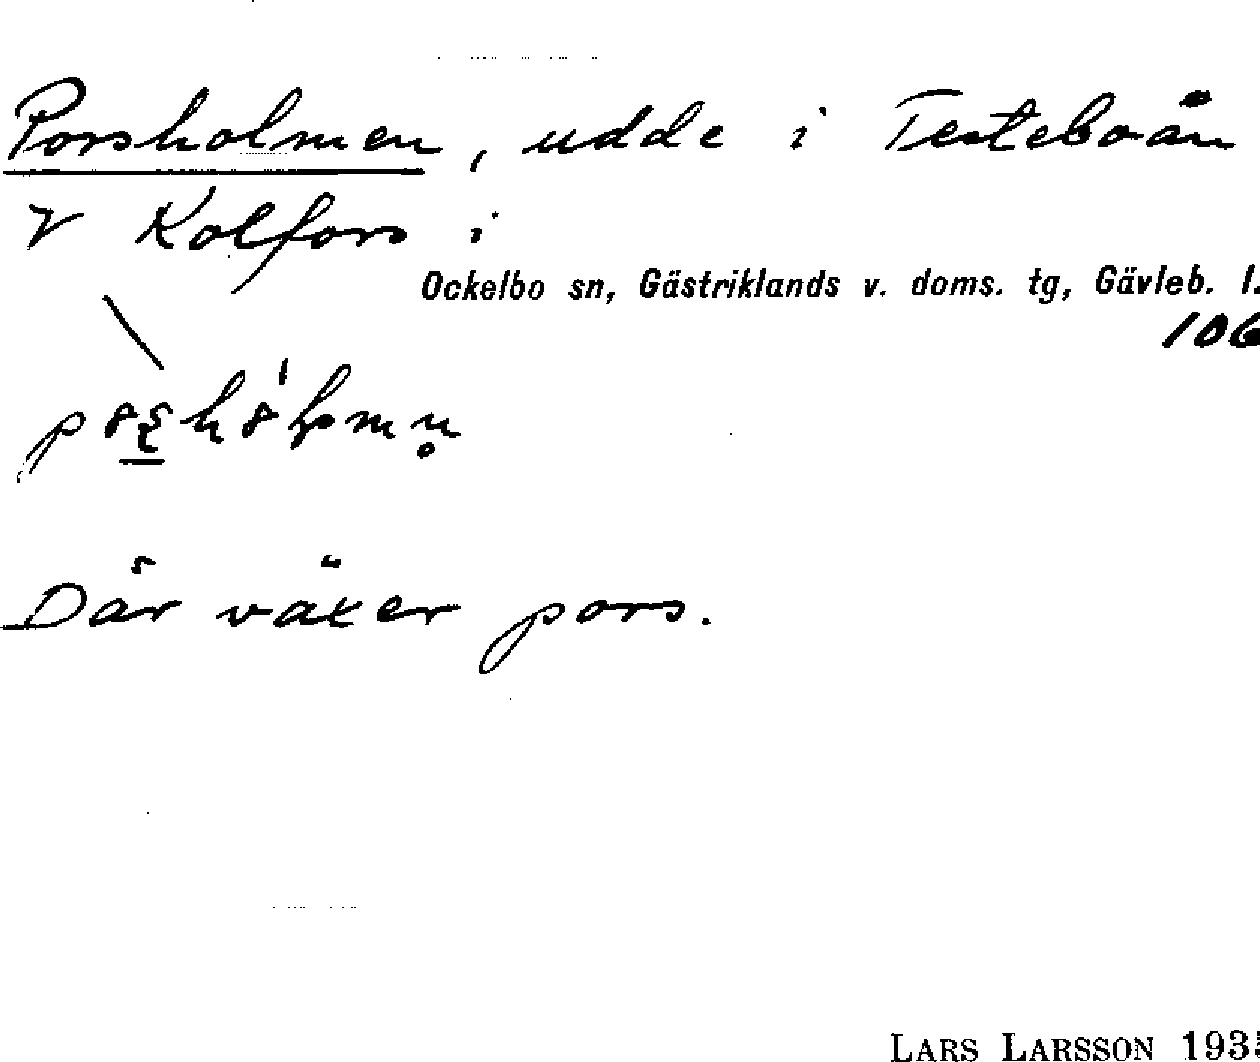 Porsholmen, udde i Testeboån
V Kolfors i
Ockelbo sn, Gästriklands v. doms. tg, Gävleb. l.
106
Där växer pors.
LARS LARSSON 193